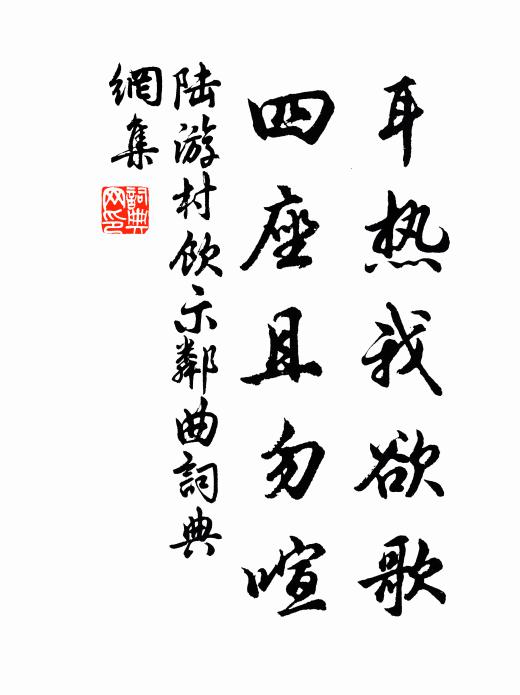 耳热我欲歌
四座且勿喧
陆游村饮示鄰曲詞典
網集
詞典
网印